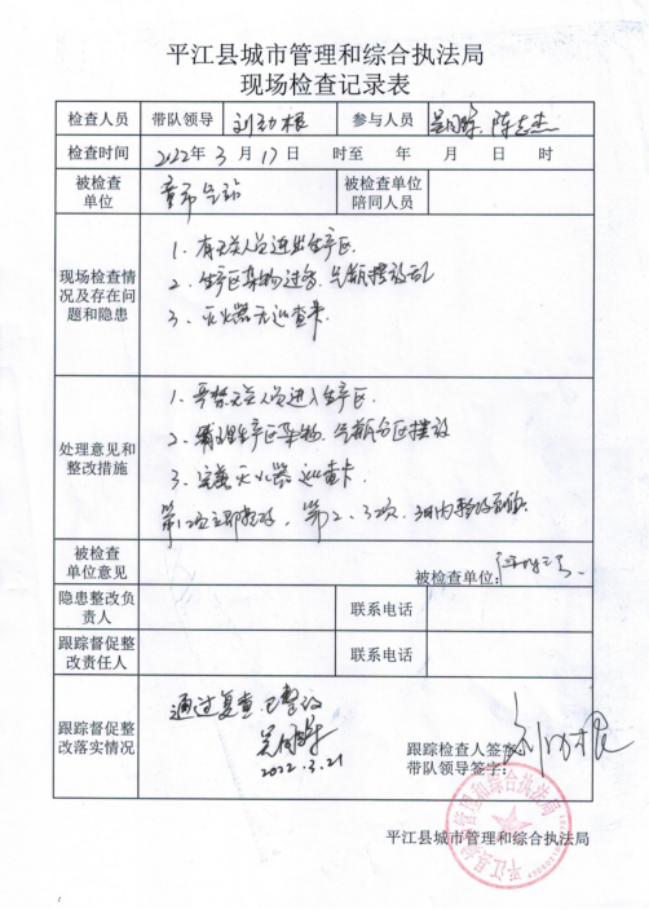 平江县城市管理和综合执法局
现场检查记录表
检查人员 带队领导 刘劲根 参与人员 陈志杰
检查时间 2022年 3 月 17 日 时至 年 月 日 时
被检查单位 童市气站 被检查单位陪同人员
现场检查情况及存在问题和隐患
1. 有无关人员进出生产区.
2. 生产区杂物过多, 气瓶摆放乱
3. 灭火器无巡查卡.
处理意见和整改措施
1. 严禁无关人员进入生产区.
2. 清理生产区杂物. 气瓶分区摆放
3. 完善灭火器巡查卡.
第1项立即整改, 第2、3项, 3日内整改到位.
被检查单位意见 被检查单位:
隐患整改负责人 联系电话
跟踪督促整改责任人 联系电话
跟踪督促整改落实情况
通过复查已整改
2022.3.21
跟踪检查人签字:
带队领导签字:
平江县城市管理和综合执法局
平江县城市管理和综合执法局